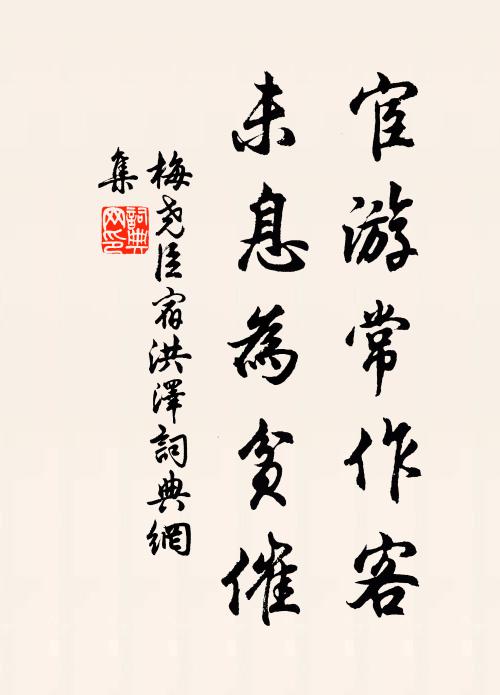 宦游常作客
未息為貧催
梅堯臣宿洪澤詞典網
集
詞典網印